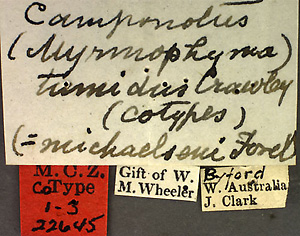 Camponotus
(Myrmophyma)
tumidus Crawley
(cotypes)
(= michaelseni Forel
M.C.Z.
CoType
1-3
22645
Gift of W.
M. Wheeler
Byford
W. Australia
J. Clark